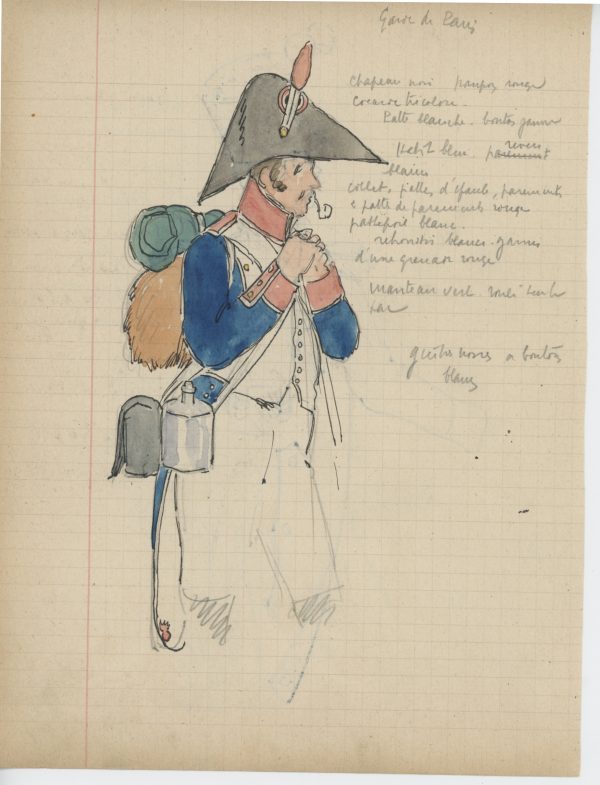 Garde de Paris
chapeau noir pompon rouge
cocarde tricolore.
Patte blanche. boutons jaunes
Habit bleu. parement revers
blancs
collet, pattes d'épaule, parements
& patte de parements rouge
passepoil blanc.
retroussis blancs. garnis
d'une grenade rouge
Manteau vert roulé sur le
sac
guêtres noires à boutons
blancs